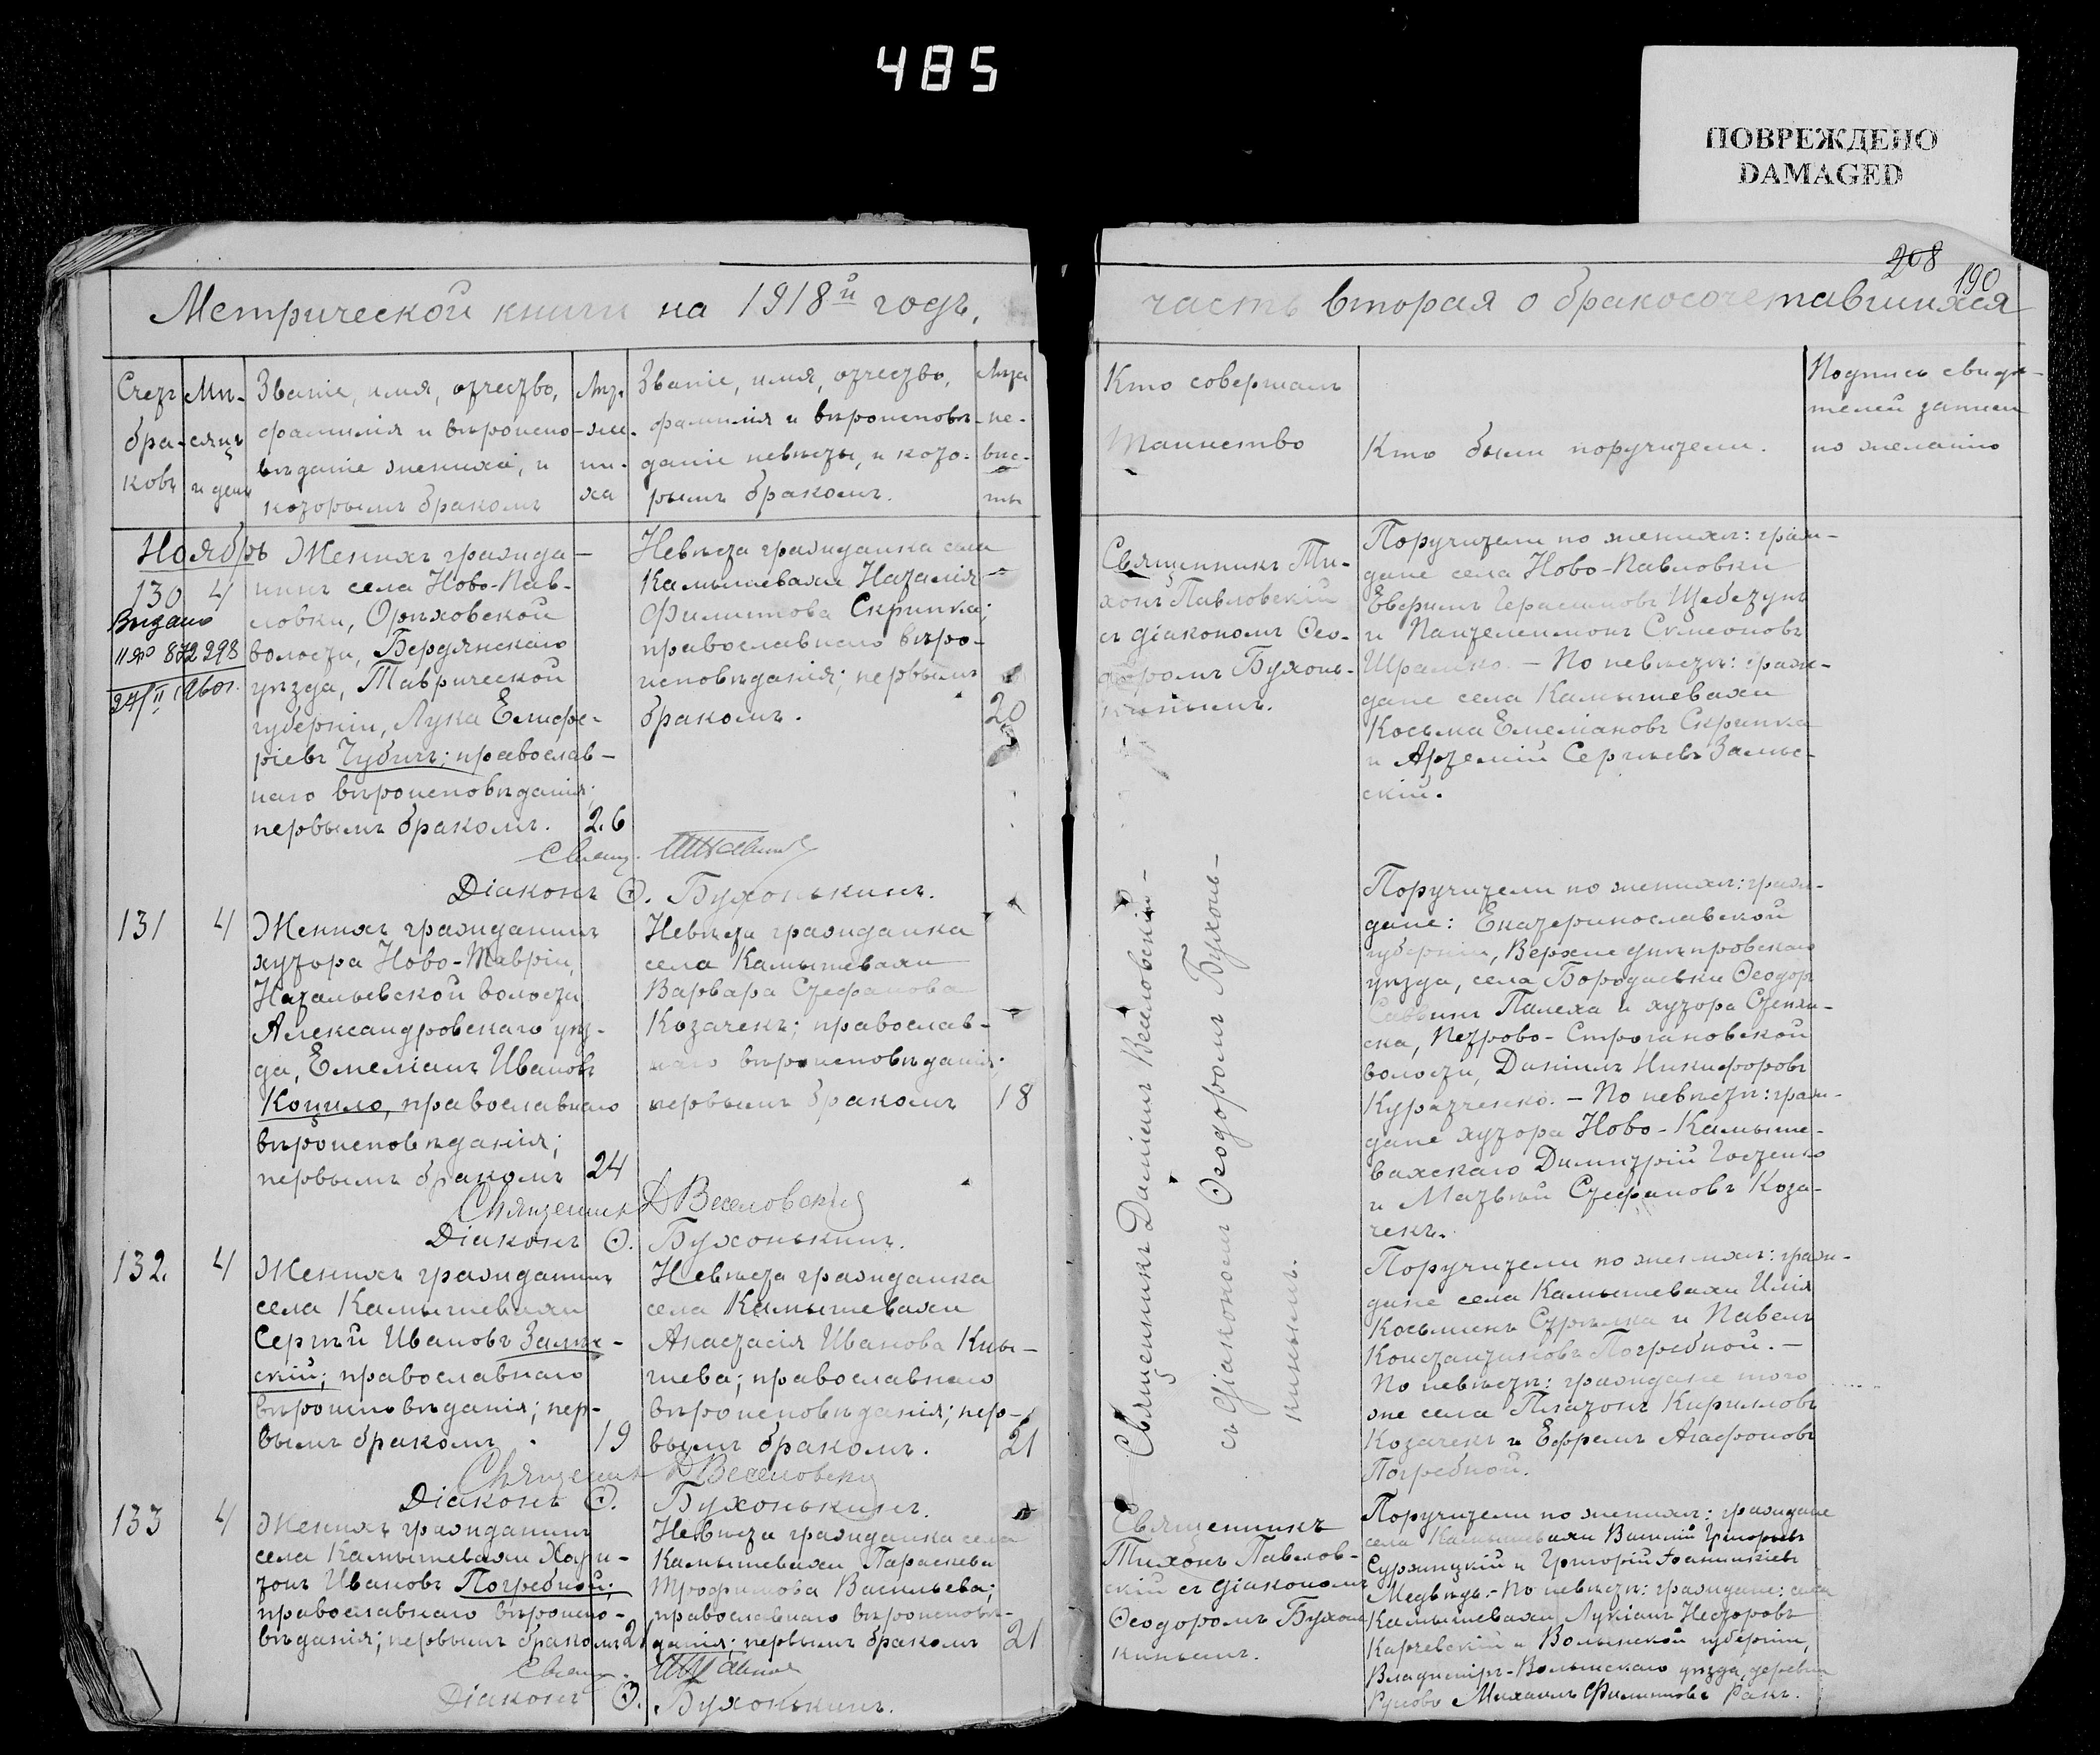 485
ПОВРЕЖДЕНО
DAMAGED
208
190
Метрической книги на 1918й годъ,
часть вторая о бракосочетавшихся
Счетъ бра-ковъ
Мѣ-сяцъ и день
Званіе, имя, отчество,
фамилія и вѣроиспо-
вѣданіе жениха, и
которымъ бракомъ
Лѣт. же-ни-ха
Званіе, имя, отчество,
фамилія и вѣроисповѣ-
даніе невѣсты, и кото-
рымъ бракомъ.
Лѣта не-вѣс-ты
Кто совершалъ
таинство
Кто были поручители.
Подпись свидѣ-
телей записи
по желанію
Ноябрь
130 4
Выдано
II ЯР 872298
24/II
Женихъ гражда-
нинъ села Ново-Пав-
ловки, Орѣховской
волости, Бердянскаго
уѣзда, Таврической
губерніи, Лука Елифе-
ріевъ Чубичъ; православ-
наго вѣроисповѣданія;
первымъ бракомъ.
26
Невѣста гражданка села
Камышевахи Наталія
Филиппова Скрипка;
православнаго вѣро-
исповѣданія; первымъ
бракомъ.
20
Свящ.
Діаконъ Ѳ. Бухонькинъ.
Священникъ Ти-
хонъ Павловскій
съ діакономъ Ѳео-
доромъ Бухонь-
кинымъ.
Поручители по женихѣ: граж-
дане села Ново-Павловки
Еверимъ Герасимовъ Щебетунъ
и Пантелеимонъ Симеоновъ
Шрамко. — По невѣстѣ: граж-
дане села Камышевахи
Косьма Емеліановъ Скрипка
и Артемій Сергѣевъ Залѣс-
скій.
131 4
Женихъ гражданинъ
хутора Ново-Тавріи,
Натальевской волости
Александровскаго уѣз-
да, Емеліанъ Ивановъ
Коцило, православнаго
вѣроисповѣданія;
первымъ бракомъ
24
Невѣста гражданка
села Камышевахи
Варвара Стефанова
Козаченъ; православ-
наго вѣроисповѣданія;
первымъ бракомъ
18
Священникъ Д Веселовскій
Діаконъ Ѳ. Бухонькинъ.
Священникъ Даміанъ Веселовскій —
съ діакономъ Ѳеодоромъ Бухонь-
кинымъ.
Поручители по женихѣ: граж-
дане: Екатеринославской
губерніи, Верхнеднѣпровскаго
уѣзда, села Бородаевки Ѳеодоръ
Саввинъ Палеха и хутора Стенхи-
ска, Петрово-Строгановской
волости, Даніилъ Никифоровъ
Куратченко. — По невѣстѣ: граж-
дане хутора Ново-Камыше-
вахскаго Димитрій Гостенко
и Матвѣй Стефановъ Коза-
ченъ.
132. 4
Женихъ гражданинъ
села Камышевахи
Сергѣй Ивановъ Залѣс-
скій; православнаго
вѣроисповѣданія; пер-
вымъ бракомъ
19
Невѣста гражданка
села Камышевахи
Анастасія Иванова Кны-
шева; православнаго
вѣроисповѣданія; пер-
вымъ бракомъ.
21
Священникъ Д Веселовскій
Діаконъ Ѳ. Бухонькинъ.
Поручители по женихѣ: граж-
дане села Камышевахи Илія
Косьминъ Стрѣлка и Павелъ
Константиновъ Погребной. —
По невѣстѣ: граждане того
же села Платонъ Кирилловъ
Козаченъ и Ефремъ Агафоновъ
Погребной.
133 4
Женихъ гражданинъ
села Камышевахи Хари-
тонъ Ивановъ Погребной;
православнаго вѣроиспо-
вѣданія; первымъ бракомъ
21
Невѣста гражданка села
Камышевахи Параскева
Трофимова Васильева;
православнаго вѣроисповѣ-
данія; первымъ бракомъ
21
Свящ.
Діаконъ Ѳ. Бухонькинъ.
Священникъ
Тихонъ Павлов-
скій съ діакономъ
Ѳеодоромъ Бухонь-
кинымъ.
Поручители по женихѣ: граждане
села Камышевахи Василій Григорьевъ
Суржицкій и Григорій Іоанникіевъ
Медвѣдь. — По невѣстѣ: граждане: села
Камышевахи Лукіанъ Несторовъ
Карчевскій и Волынской губерніи,
Владиміръ-Волынскаго уѣзда, деревни
Руново Михаилъ Филипповъ Ракъ.